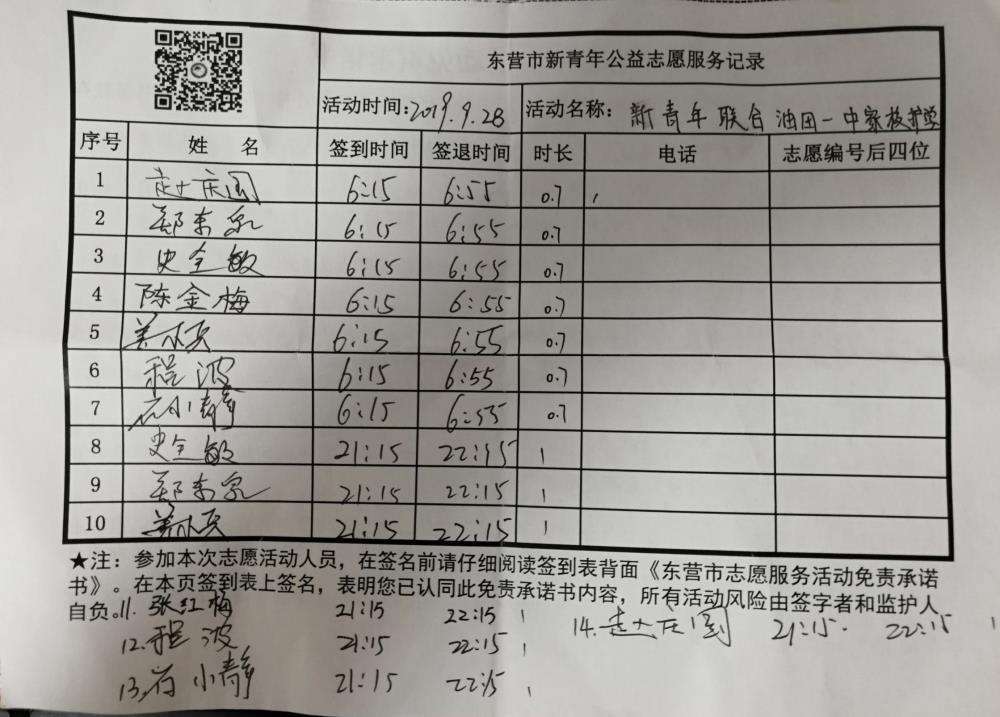 东营市新青年公益志愿服务记录
活动时间:2019.9.28 活动名称: 新青年联合油田一中家校护学
序号 姓 名 签到时间 签退时间 时长 电话 志愿编号后四位
1 赵庆国 6:15 6:55 0.7
2 郑东泉 6:15 6:55 0.7
3 史全敏 6:15 6:55 0.7
4 陈金梅 6:15 6:55 0.7
5 6:15 6:55 0.7
6 程波 6:15 6:55 0.7
7 小静 6:15 6:55 0.7
8 史全敏 21:15 22:15 1
9 郑东泉 21:15 22:15 1
10 21:15 22:15 1
★注：参加本次志愿活动人员，在签名前请仔细阅读签到表背面《东营市志愿服务活动免责承诺
书》。在本页签到表上签名，表明您已认同此免责承诺书内容，所有活动风险由签字者和监护人
自负。
11. 张红梅 21:15 22:15 1
12. 程波 21:15 22:15 1
13. 小静 21:15 22:15 1
14. 赵庆国 21:15. 22:15 1